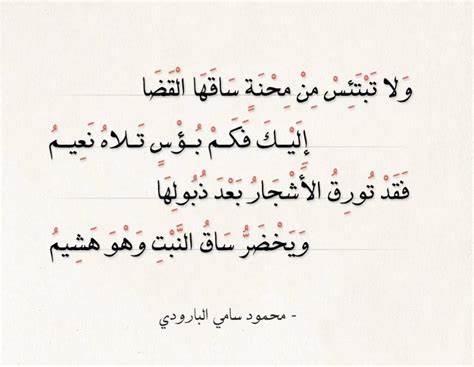 وَلا تَبْتَئِسْ مِنْ مِحْنَةٍ سَاقَهَا الْقَضَا
إِلَيْـكَ فَكَـمْ بُـؤْسٍ تَـلاهُ نَعِيـمُ
فَقَدْ تُورِقُ الأَشْجَارُ بَعْدَ ذُبُولِهَا
وَيَخْضَرُّ سَاقُ النَّبْتِ وَهْوَ هَشِيمُ
- محمود سامي البارودي